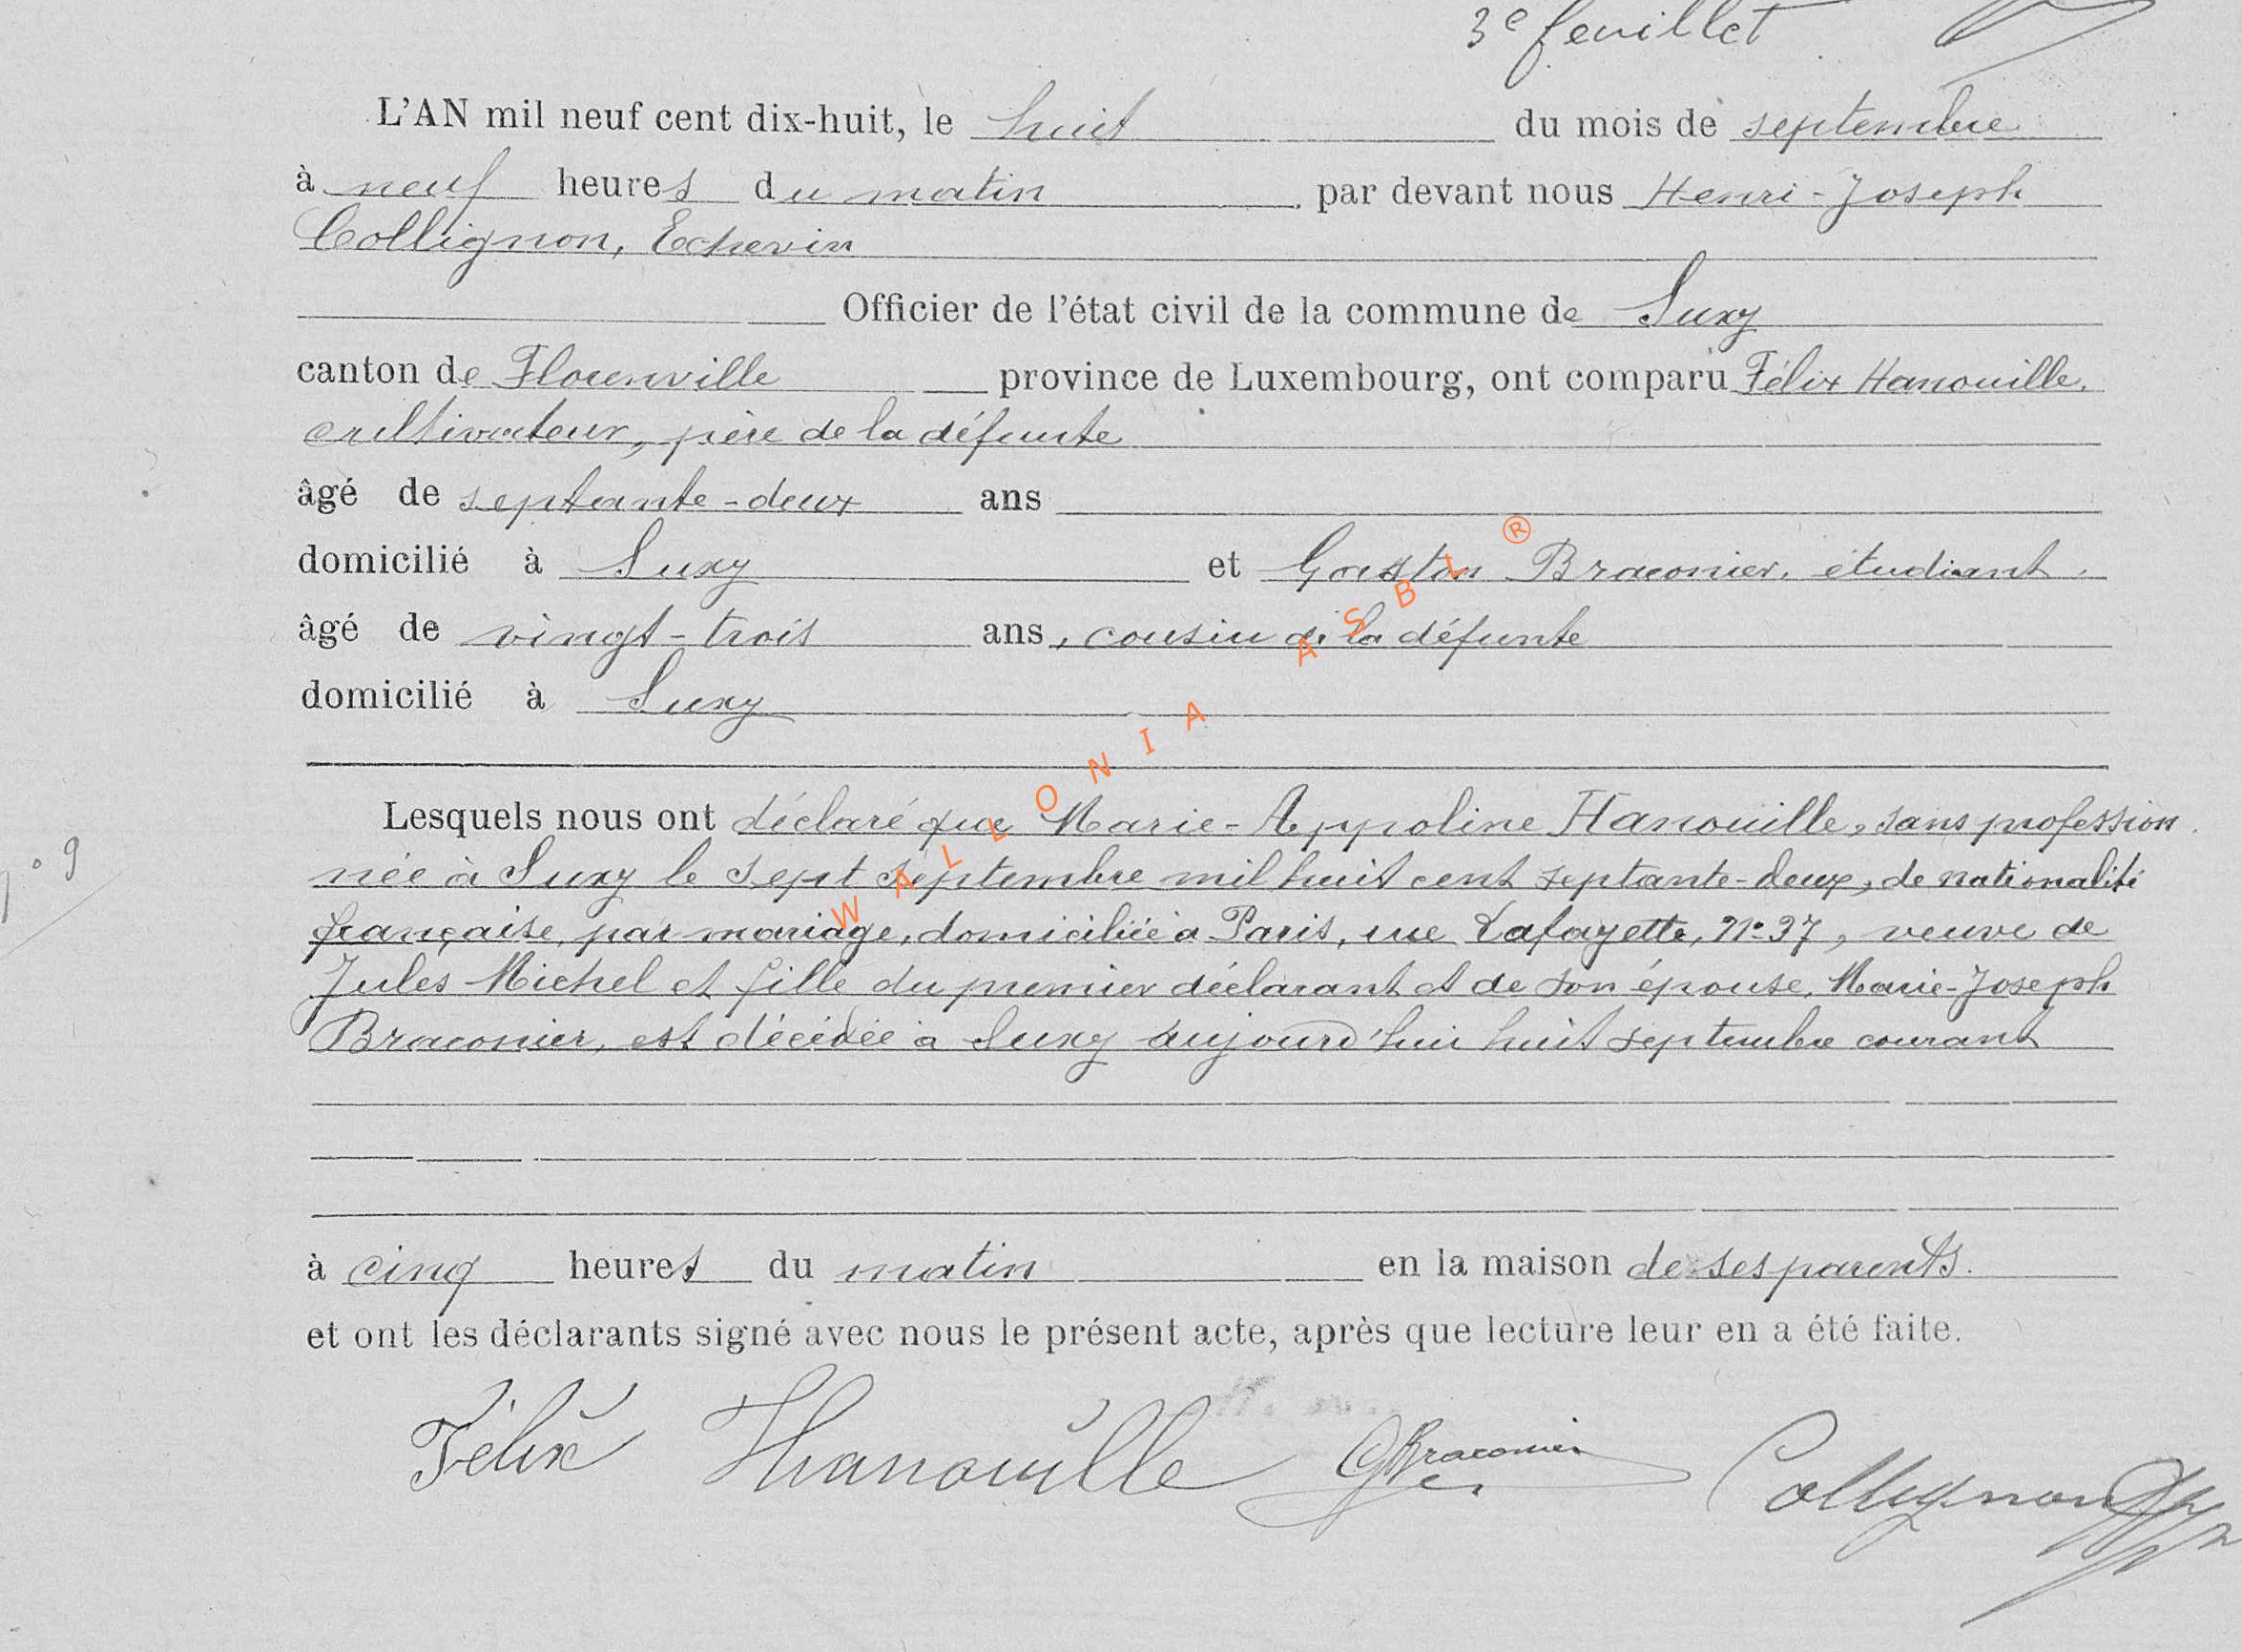 3e feuillet
L'AN mil neuf cent dix-huit, le huit du mois de septembre
à neuf heures du matin par devant nous Henri-Joseph
Collignon, Echevin
Officier de l'état civil de la commune de Suxy
canton de Florenville province de Luxembourg, ont comparu Félix Hanouille,
cultivateur, père de la défunte
âgé de septante-deux ans
domicilié à Suxy et Gaston Braconier, étudiant,
âgé de vingt-trois ans, cousin de la défunte
domicilié à Suxy
Lesquels nous ont déclaré que Marie-Appoline Hanouille, sans profession
n° 9
née à Suxy le sept septembre mil huit cent septante-deux, de nationalité
française, par mariage, domiciliée à Paris, rue Lafayette, N° 37, veuve de
Jules Michel et fille du premier déclarant et de son épouse, Marie-Joseph
Braconier, est décédée à Suxy aujourd'hui huit septembre courant
à cinq heures du matin en la maison de ses parents.
et ont les déclarants signé avec nous le présent acte, après que lecture leur en a été faite.
Félix Hanouille GBraconier Collignon
WALLONIA ASBL ®